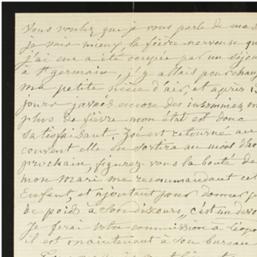 Vous voulez que je vous parle de ma s
je vais mieux, la fièvre nerveuse qu
j'ai eue a été coupée par un séjou
à St germain, j'y allais pour chang
ma petite nièce d'air, et après 15
jours j'avais encore des insomnies, m
plus de fièvre mon état est donc
satisfaisant, Zoé est retournée au
couvent elle en sortira au mois d'ao
prochain figurez vous la bonté de
mon mari me recommandant cet
Enfant, et ajoutant pour donner p
de poids à son discours, c'est un devo
Je ferai votre commission à Léopo
il est maintenant à son bureau